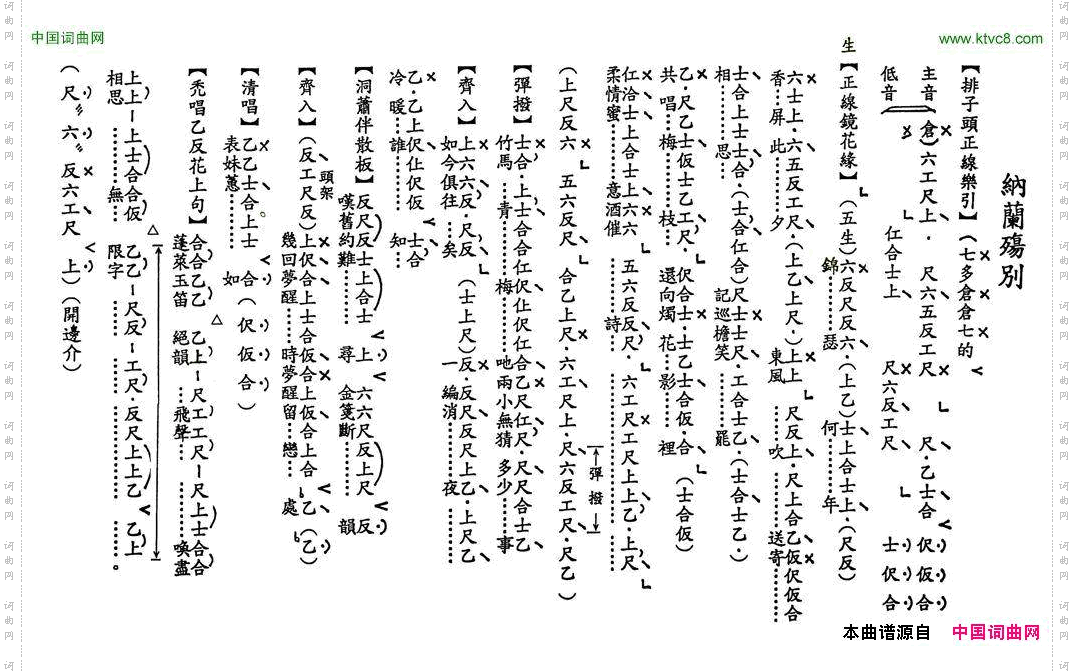 中国词曲网
www.ktvc8.com
納蘭殤別
【排子頭正線樂引】（七多倉倉七的
主音 倉）六工尺上．尺六五反工尺 尺．乙士合 伬 仮 合
低音 仜合士上 尺六反工尺 士 伬 合
生【正線鏡花緣】（五生）六反尺反六．（上乙）士上合士上．（尺反）
錦………瑟 何………年
六士上．六五反工尺．（上乙上尺．）上上 尺反上．尺上合乙仮伬仮合
香．屏 此………夕 東風………吹………送寄………
士合上士士合．（士合仜合）尺士士尺．工合士乙．（士合士乙．）
相………思… 記巡檐笑………罷
乙．尺乙士仮士乙工尺．伬合士．士乙士合仮．合（士合仮）
共．唱…梅………枝… 還向燭 花…影………裡
仁洽士上合士上六六 五六反尺．六工尺工尺上上乙．上尺
柔情蜜………意酒催 詩………
（上尺反六 五六反尺 合乙上尺．六工尺上．尺六反工尺．尺乙）
彈撥
【彈撥】士合．上士合合仜伬仩伬仜合乙尺仁尺．尺尺合士乙
竹馬…青………梅………吔兩小無猜 多少………事
【齊入】上六六反．尺反（士上尺）反．反尺反尺上乙．上尺乙
如今俱往…矣 一編消………夜………
乙．乙上伬仩伬仮 士合
冷 暖…誰……… 知…
【洞蕭伴散板】反尺反士上合士 上．六六尺反上尺 反
嘆舊約難……… 尋 金箋斷……… 韻
【齊入】（反工尺反）上伬合上士合仮合上仮合上合 乙（乙）
頭架
幾回夢醒………時夢醒留…戀… 處
【清唱】乙乙士合上士 合（伬 仮 合）
表妹蕙……… 如
【禿唱乙反花上句】合合乙乙 乙上－尺工工尺－尺上士合合
蓬萊玉笛 絕韻…飛聲………喚盡
上上－上士合合仮 乙乙－尺反－工尺．反尺上上乙 乙上
相思………無… 限字………。
（尺 六 反六工尺 上）（開邊介）
本曲谱源自 中国词曲网